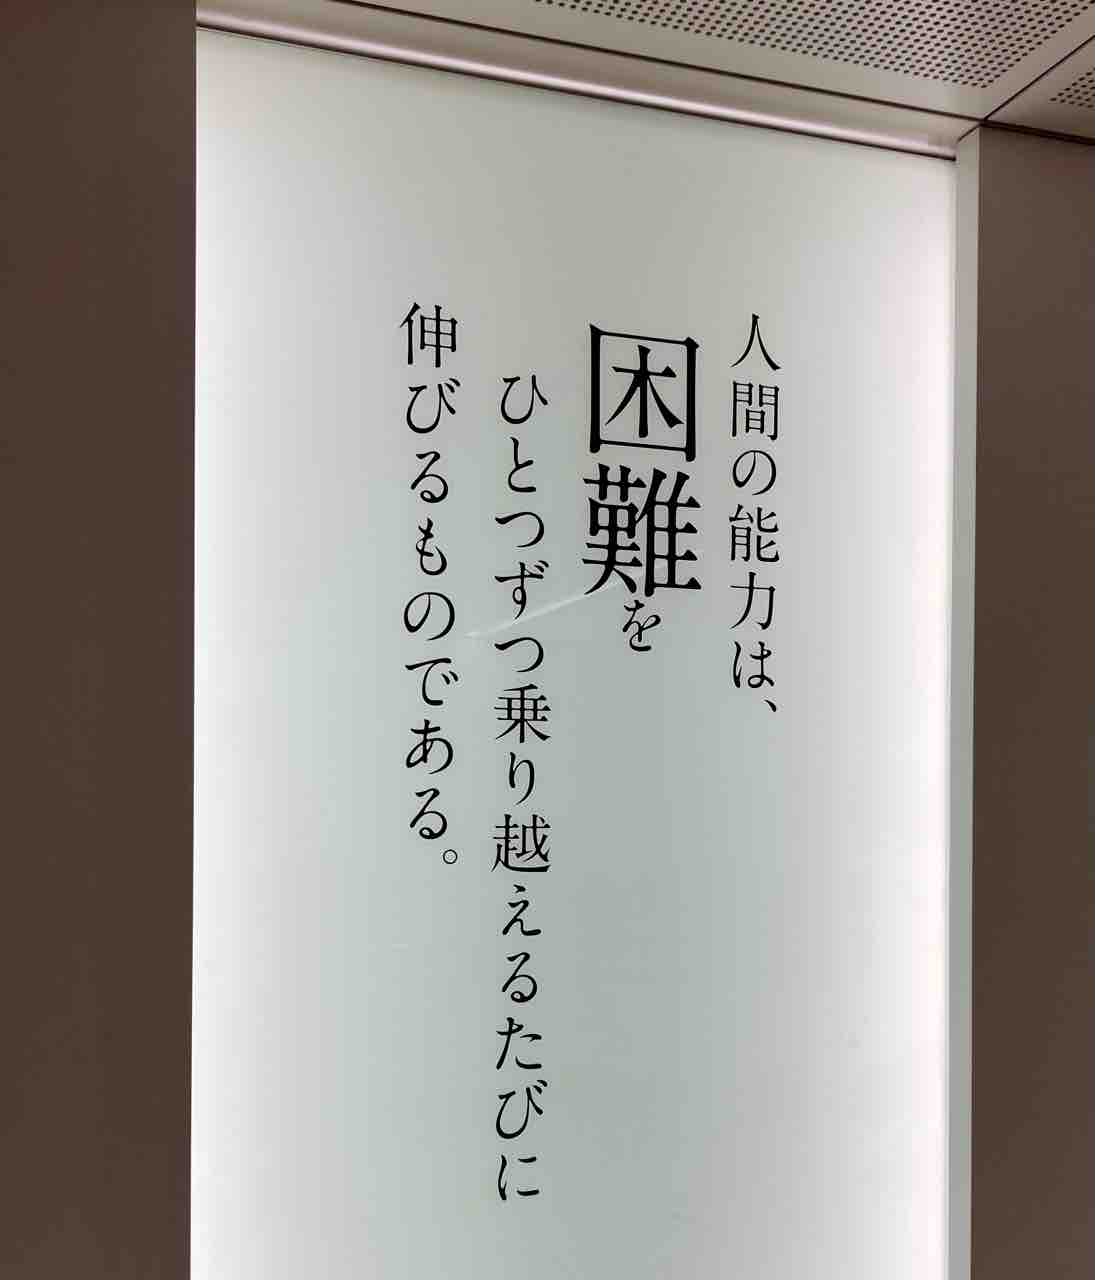 人間の能力は、
困難を
ひとつずつ乗り越えるたびに
伸びるものである。